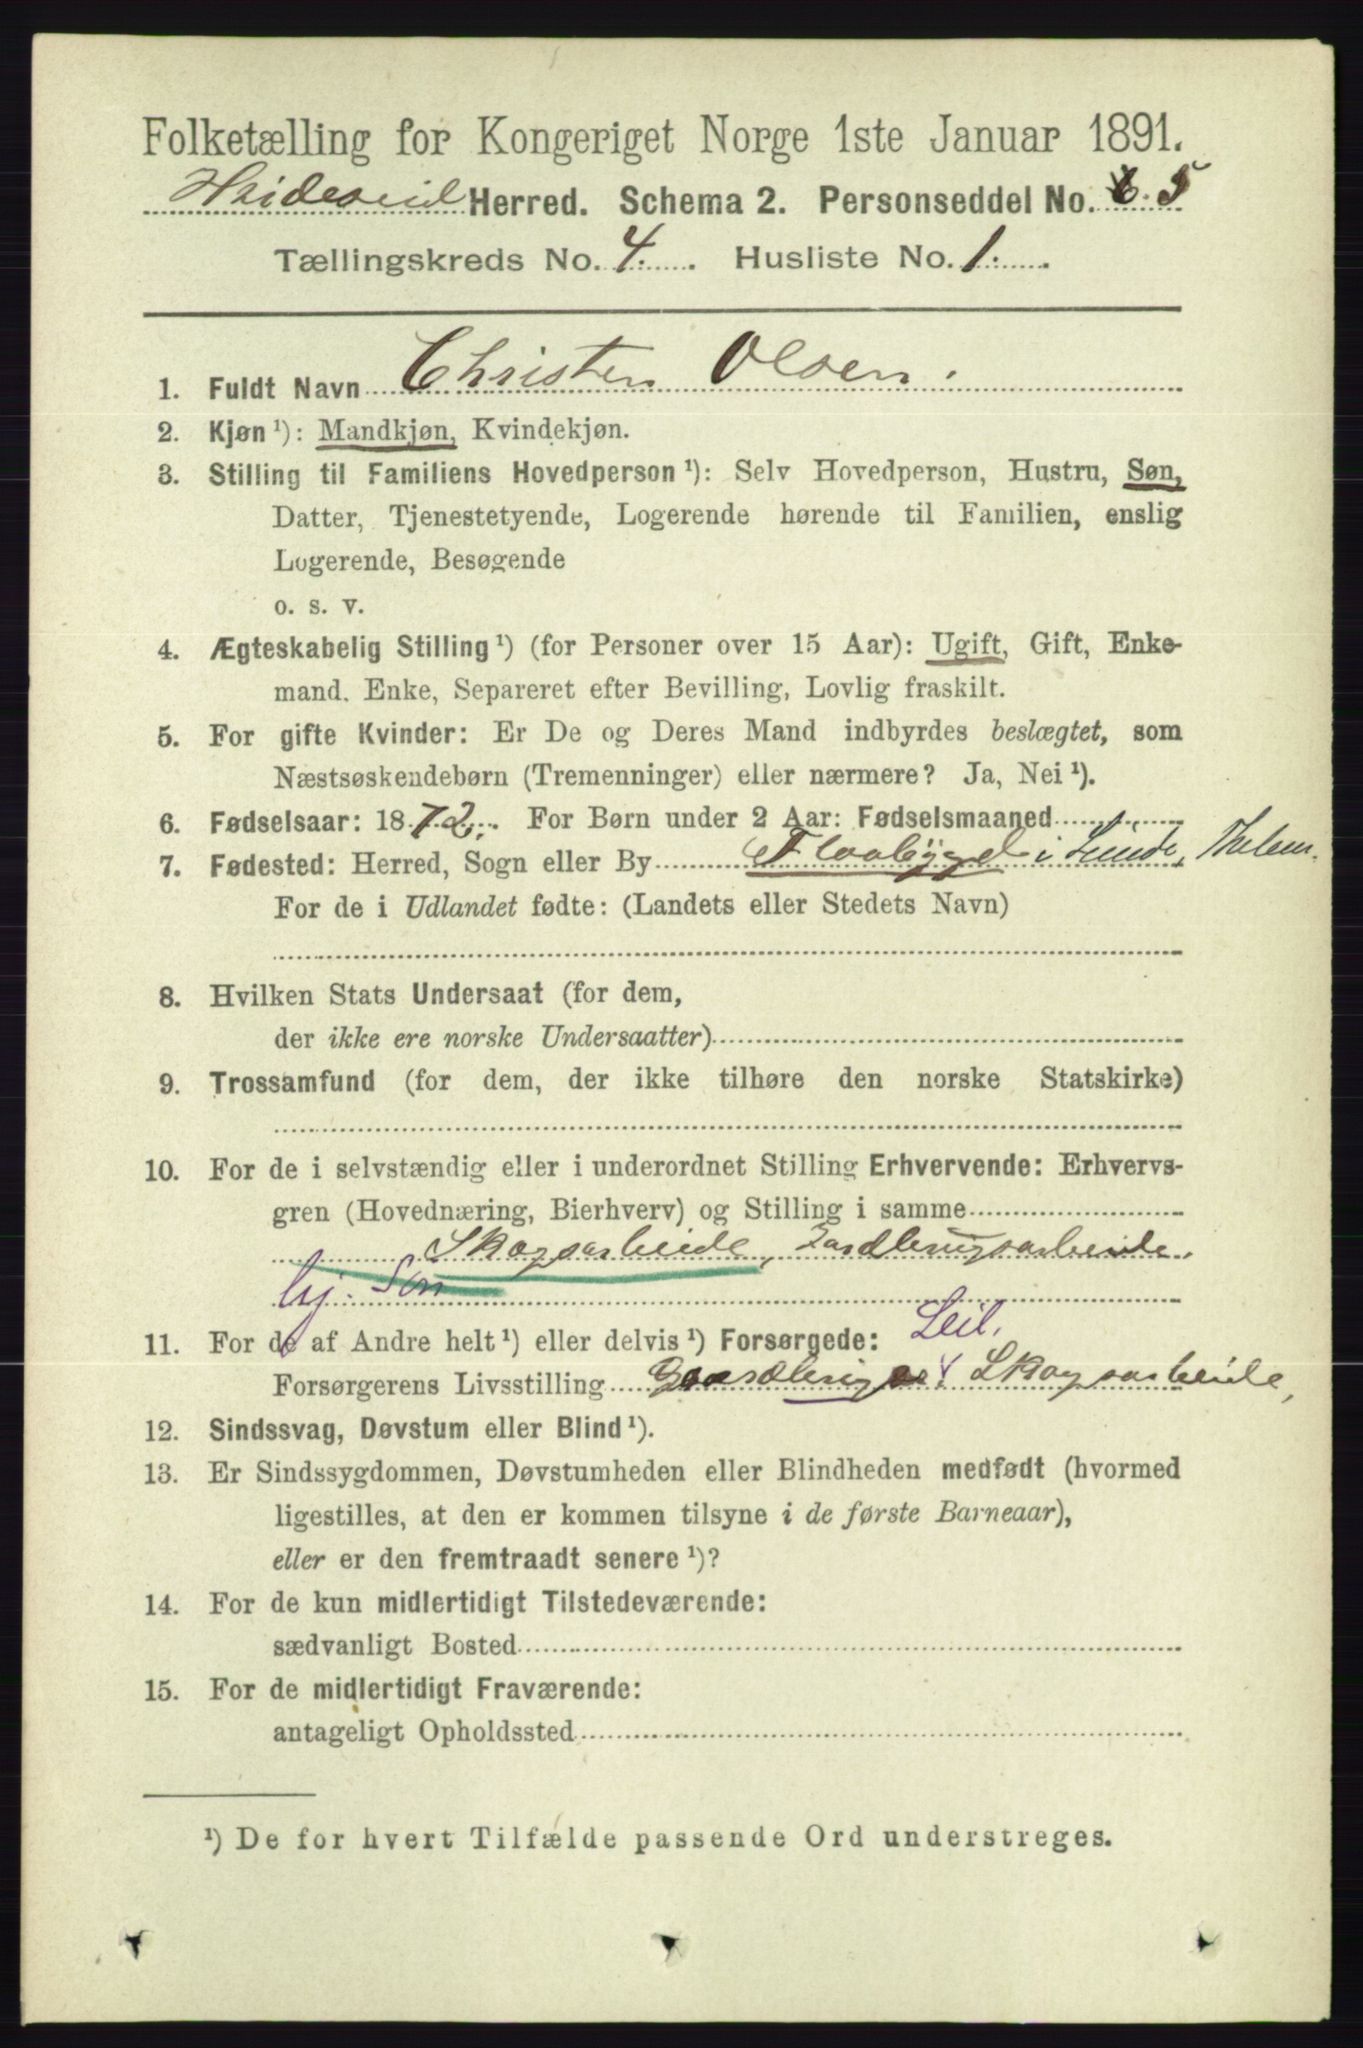 Folketælling for Kongeriget Norge 1ste Januar 1891.
Hvideseid Herred. Schema 2. Personseddel No. 5
Tællingskreds No. 4. Husliste No. 1.
1. Fuldt Navn Christen Olsen.
2. Kjøn ¹): Mandkjøn, Kvindekjøn.
3. Stilling til Familiens Hovedperson ¹): Selv Hovedperson, Hustru, Søn,
Datter, Tjenestetyende, Logerende hørende til Familien, enslig
Logerende, Besøgende
o. s. v.
4. Ægteskabelig Stilling ¹) (for Personer over 15 Aar): Ugift, Gift, Enke-
mand. Enke, Separeret efter Bevilling, Lovlig fraskilt.
5. For gifte Kvinder: Er De og Deres Mand indbyrdes beslægtet, som
Næstsøskendebørn (Tremenninger) eller nærmere? Ja, Nei ¹).
6. Fødselsaar: 1872. For Børn under 2 Aar: Fødselsmaaned
7. Fødested: Herred, Sogn eller By Flaabygd i Lunde, Thelem.
For de i Udlandet fødte: (Landets eller Stedets Navn)
8. Hvilken Stats Undersaat (for dem,
der ikke ere norske Undersaatter)
9. Trossamfund (for dem, der ikke tilhøre den norske Statskirke)
10. For de i selvstændig eller i underordnet Stilling Erhvervende: Erhvervs-
gren (Hovednæring, Bierhverv) og Stilling i samme
Skogsarbeide, Jordbrugsarbeide.
hj. Søn
11. For de af Andre helt ¹) eller delvis ¹) Forsørgede: Leil.
Forsørgerens Livsstilling Gaardbrug Skogsarbeide,
12. Sindssvag, Døvstum eller Blind ¹).
13. Er Sindssygdommen, Døvstumheden eller Blindheden medfødt (hvormed
ligestilles, at den er kommen tilsyne i de første Barneaar),
eller er den fremtraadt senere ¹)?
14. For de kun midlertidigt Tilstedeværende:
sædvanligt Bosted
15. For de midlertidigt Fraværende:
antageligt Opholdssted
¹) De for hvert Tilfælde passende Ord understreges.